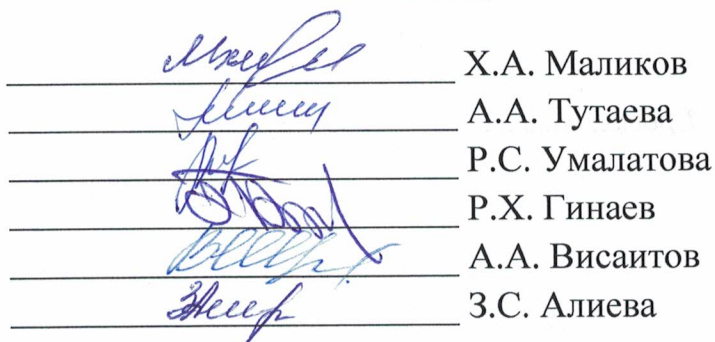 Х.А. Маликов
А.А. Тутаева
Р.С. Умалатова
Р.Х. Гинаев
А.А. Висаитов
З.С. Алиева